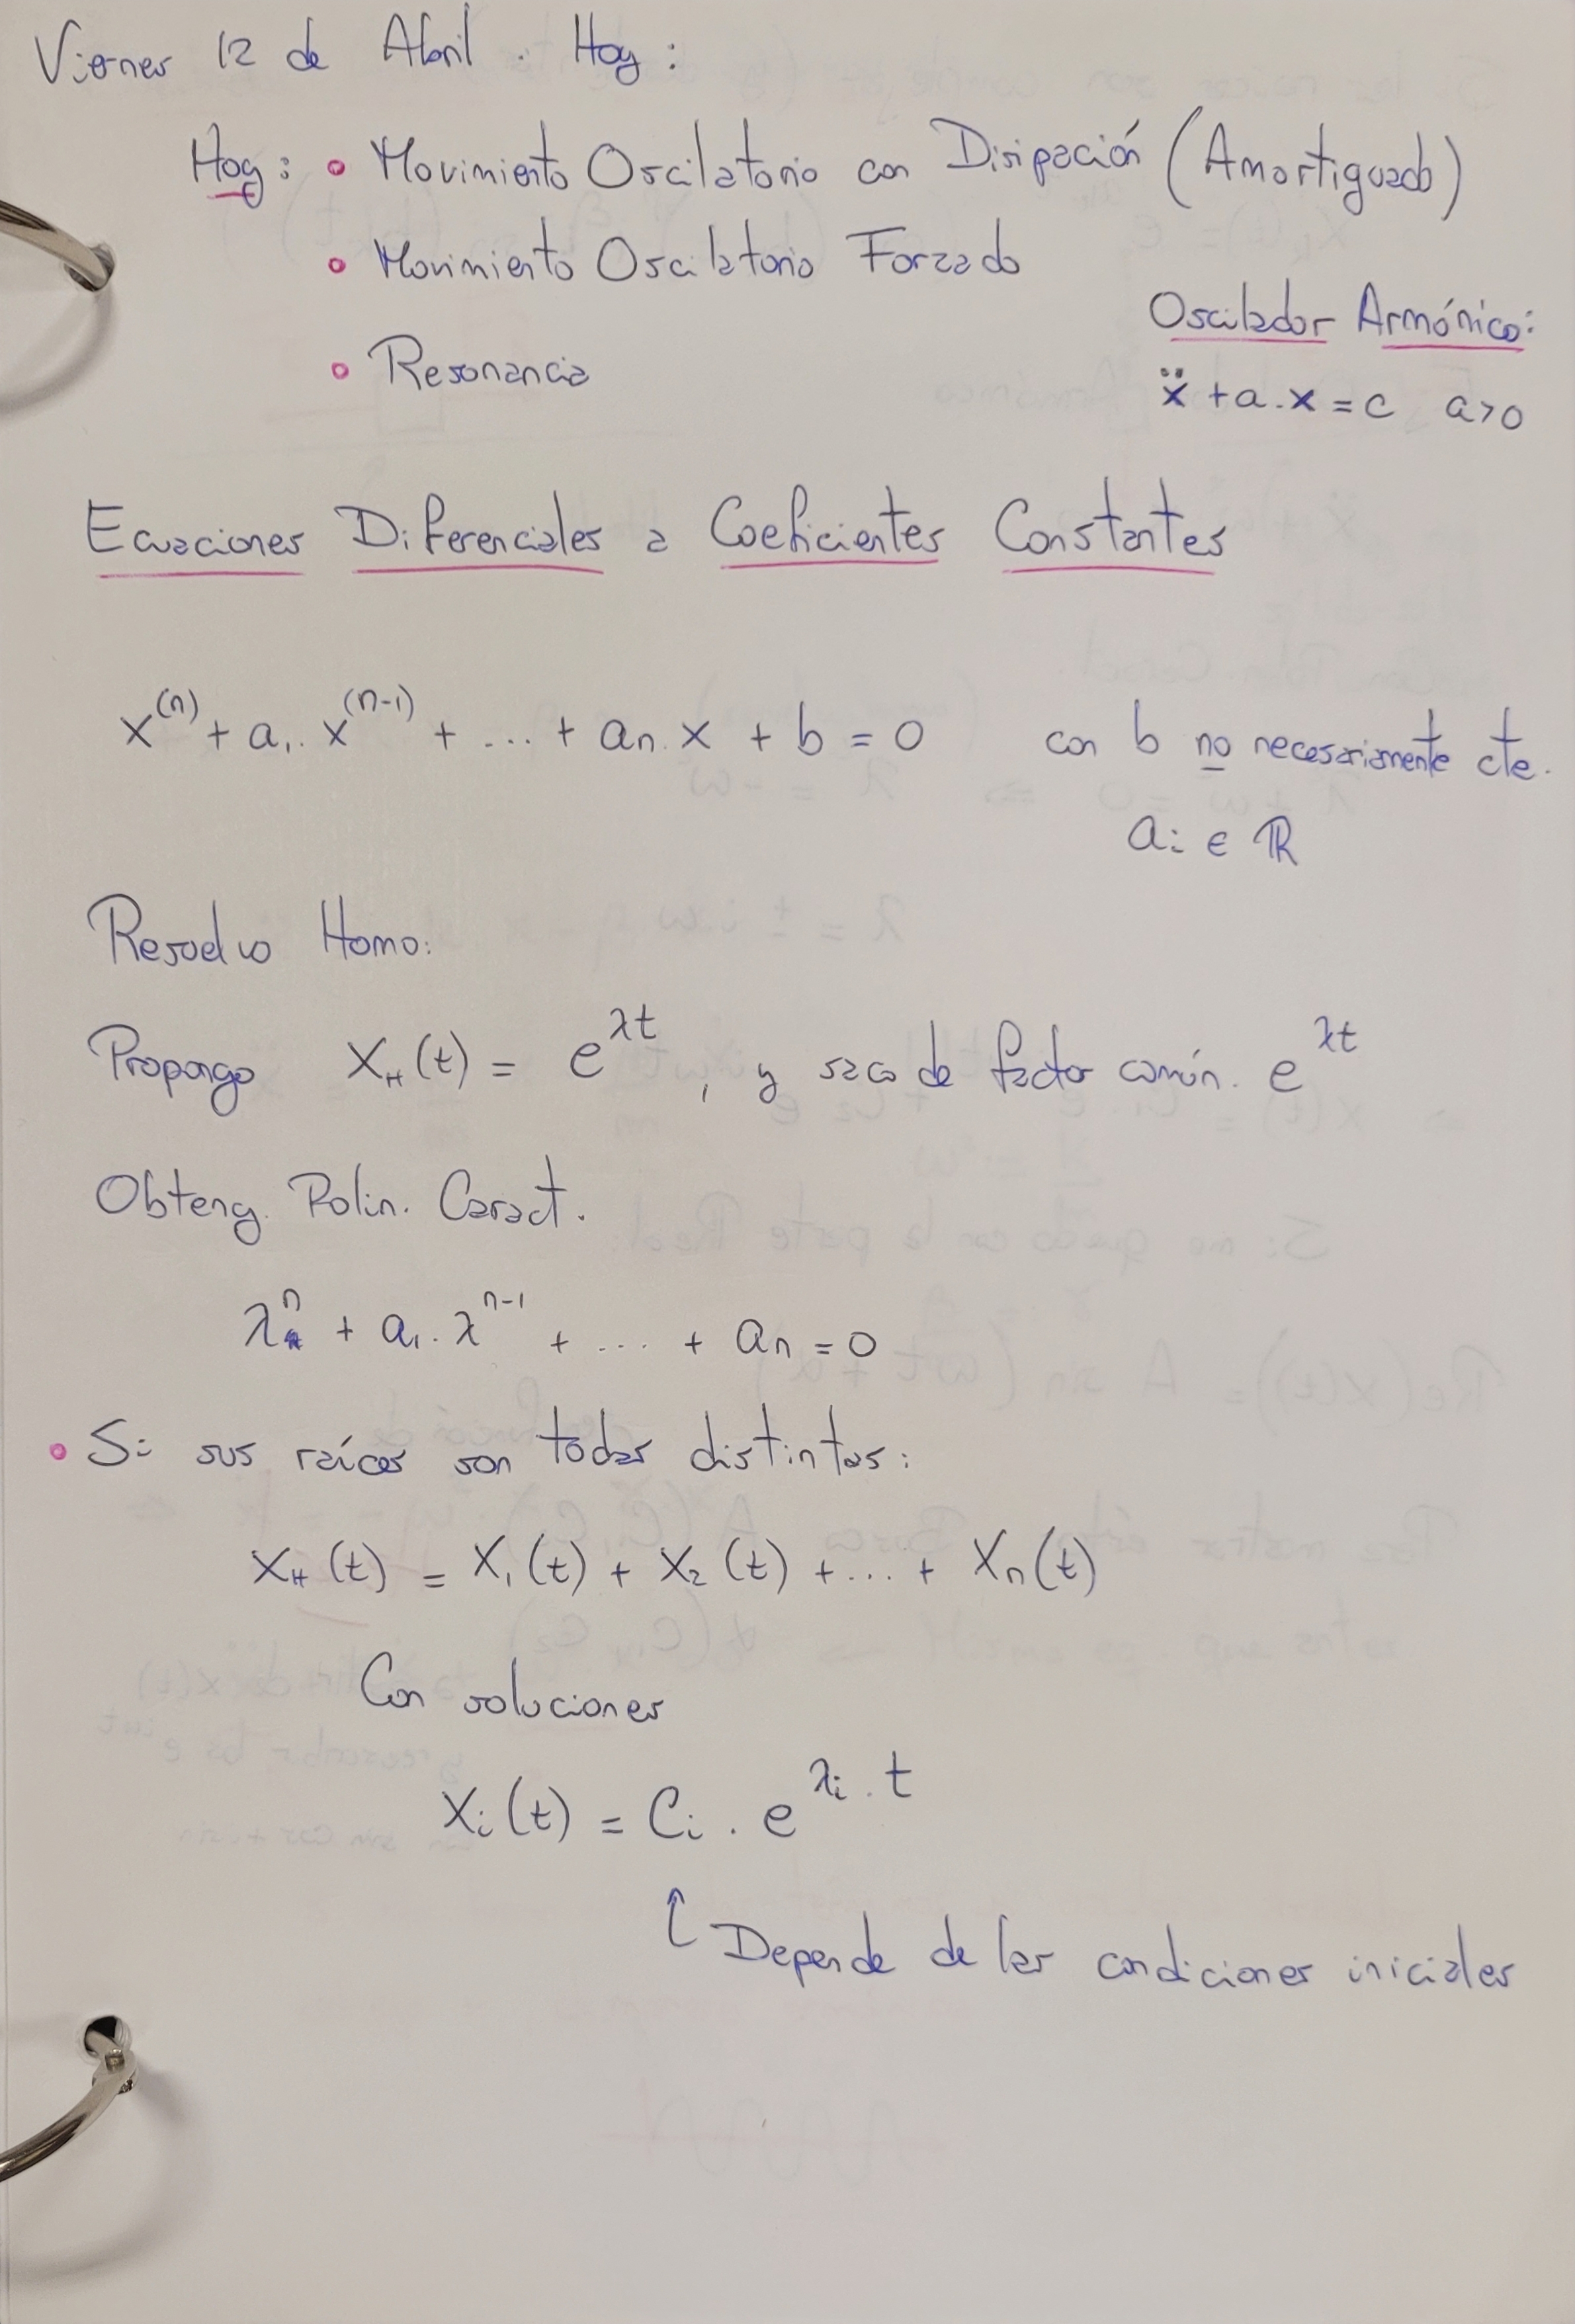 Viernes 12 de Abril. Hoy:
Hoy: • Movimiento Oscilatorio con Disipación (Amortiguado)
• Movimiento Oscilatorio Forzado
• Resonancia
Oscilador Armónico:
ẍ + a.x = c a>0
Ecuaciones Diferenciales a Coeficientes Constantes
x⁽ⁿ⁾ + a₁. x⁽ⁿ⁻¹⁾ + ... + aₙ.x + b = 0 con b no necesariamente cte.
aᵢ ∈ ℝ
Resuelvo Homo:
Propongo X_H(t) = e^{λt}, y saco de factor común. e^{λt}
Obteng. Polin. Caract.
λⁿ + a₁.λⁿ⁻¹ + ... + aₙ = 0
• Si sus raíces son todas distintas:
X_H(t) = X₁(t) + X₂(t) + ... + Xₙ(t)
Con soluciones
Xᵢ(t) = Cᵢ . e^{λᵢ.t}
↑ Depende de las condiciones iniciales